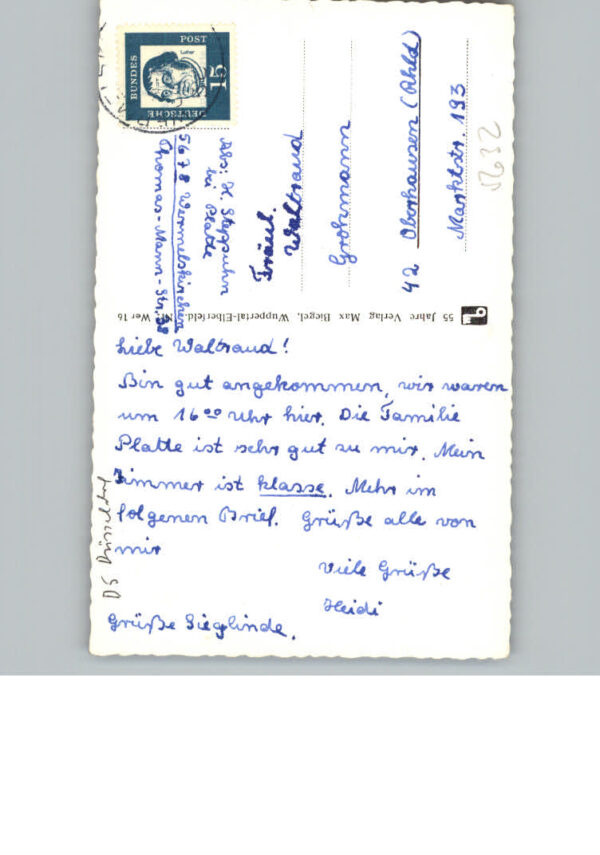 Liebe Waltraud!
Bin gut angekommen, wir waren
um 16 00 Uhr hier. Die Familie
Platte ist sehr gut zu mir. Mein
Zimmer ist klasse. Mehr im
folgenen Brief. Grüße alle von
mir
Viele Grüße
Heidi
Grüße Sieglinde.
DS Düsseldorf
55 Jahre Verlag Max Biegel, Wuppertal-Elberfeld. Wer 16
Abs: H.
bei Platte
5678 Wermelskirchen
Thomas-Mann-Str. 38
Fräul.
Waltraud
Grohmann
42 Oberhausen (Rhld)
Marktstr. 193
DEUTSCHE
BUNDES
POST
Luther
15